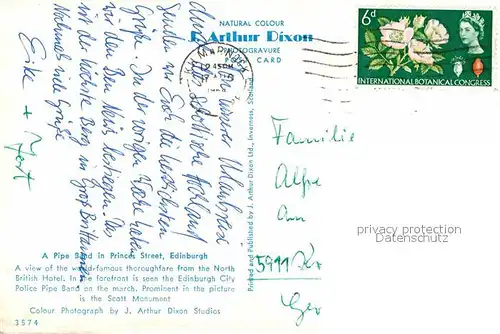 NATURAL COLOUR
J. Arthur Dixon
PHOTOGRAVURE
POST CARD
6d
INTERNATIONAL BOTANICAL CONGRESS
unserer
schottische Hochland
senden wir Euch die herzlichsten
Grüße. In der vorigen Woche haben
wir den Ben Nevis bestiegen. Das
ist der höchste Berg in Großbritannien.
Nochmals viele Grüße
Eike + Gert
Printed and Published by J. Arthur Dixon Ltd., Inverness, Scotland
Familie
5911
Ger
privacy protection
Datenschutz
A Pipe Band in Princes Street, Edinburgh
A view of the world-famous thoroughfare from the North
British Hotel. In the forefront is seen the Edinburgh City
Police Pipe Band on the march. Prominent in the picture
is the Scott Monument
Colour Photograph by J. Arthur Dixon Studios
3574